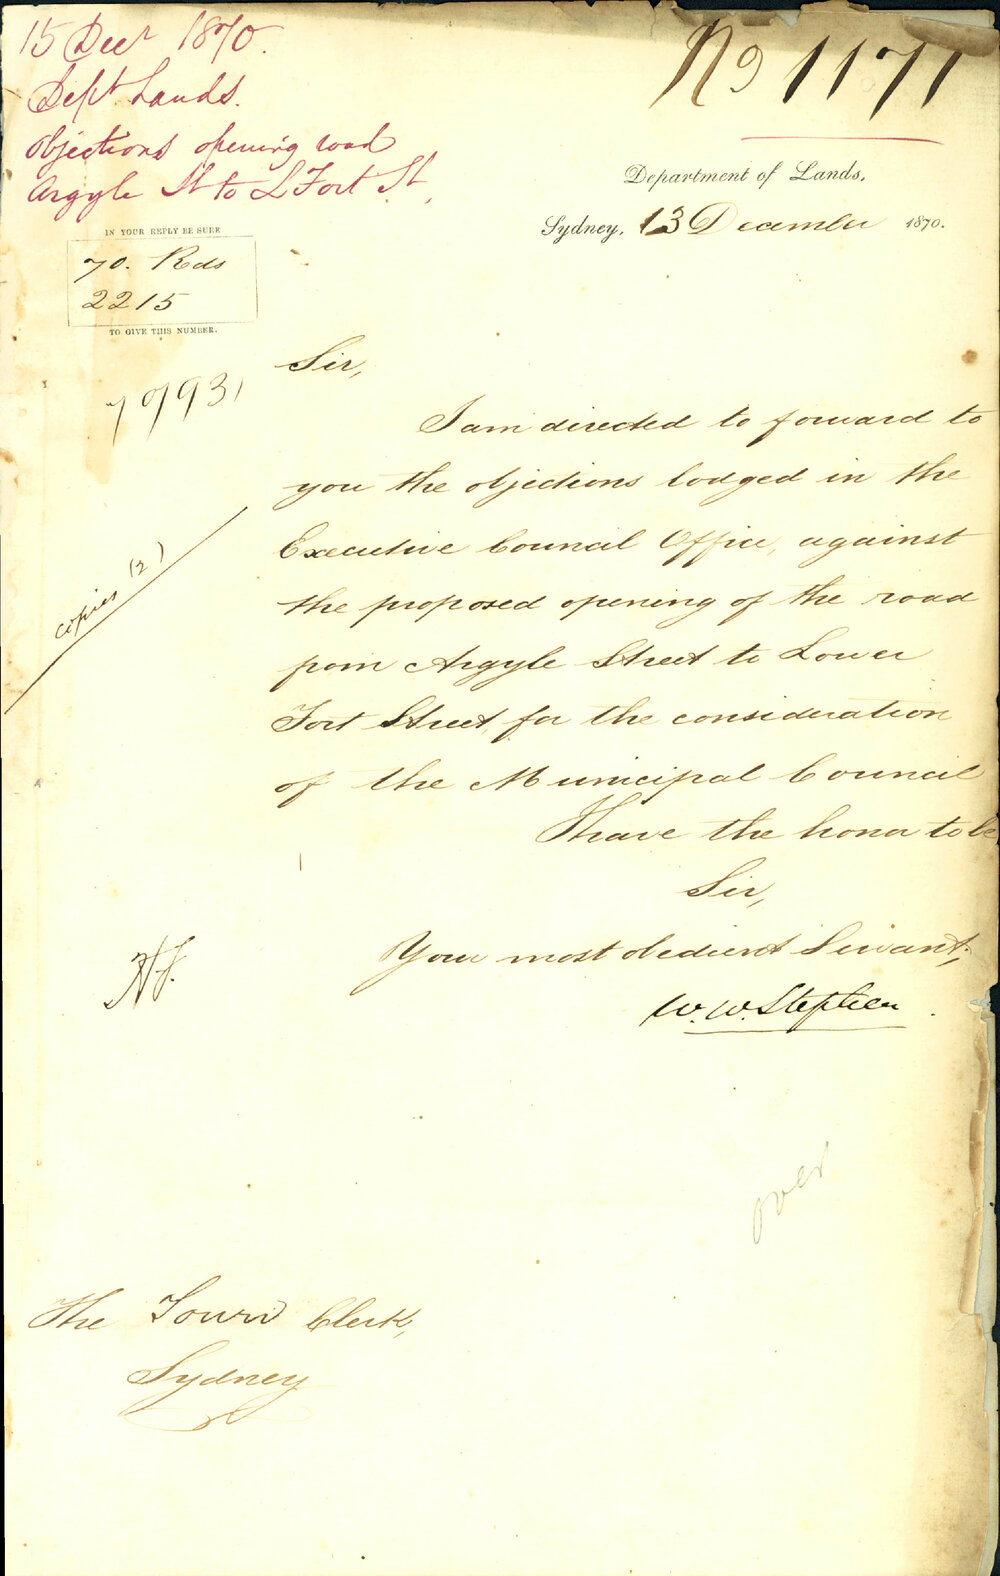 15 Decr 1870.
Dept Lands.
Objections opening road
Argyle St to L Fort St.
No 1171
Department of Lands,
Sydney, 13 December 1870.
IN YOUR REPLY BE SURE
70. Rds
2215
TO GIVE THIS NUMBER.
Sir,
I am directed to forward to
you the objections lodged in the
Executive Council Office, against
the proposed opening of the road
from Argyle Street to Lower
Fort Street, for the consideration
of the Municipal Council
I have the honor to be
Sir,
Your most obedient Servant,
W. W. Stephen
copies (2)
over
The Town Clerk,
Sydney